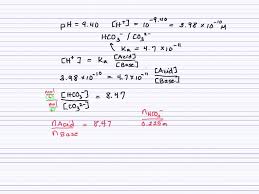 pH = 9.40 [H⁺] = 10^-9.40 = 3.98 × 10⁻¹⁰ M
HCO₃⁻ / CO₃²⁻
Ka = 4.7 × 10⁻¹¹
[H⁺] = Ka [Acid] / [Base]
3.98 × 10⁻¹⁰ = 4.7 × 10⁻¹¹ [Acid] / [Base]
[HCO₃⁻] / [CO₃²⁻] = 8.47
nAcid / nBase = 8.47 nHCO₃⁻